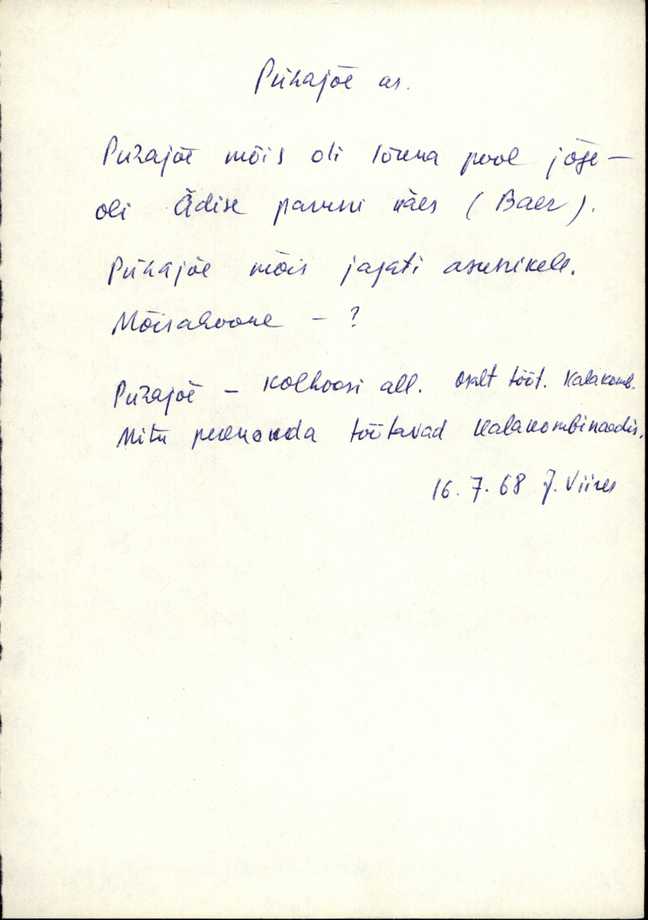 Pühajõe as.
Pühajõe mõis oli lõuna pool jõge —
oli Ädise paruni käes (Baer).
Pühajõe mõis jagati asunikele.
Mõisahoone – ?
Pühajõe – kolhoosi all. Osalt tööt. kalakomb.
Mitu perekonda töötavad kalakombinaadis.
16.7.68 J. Viires